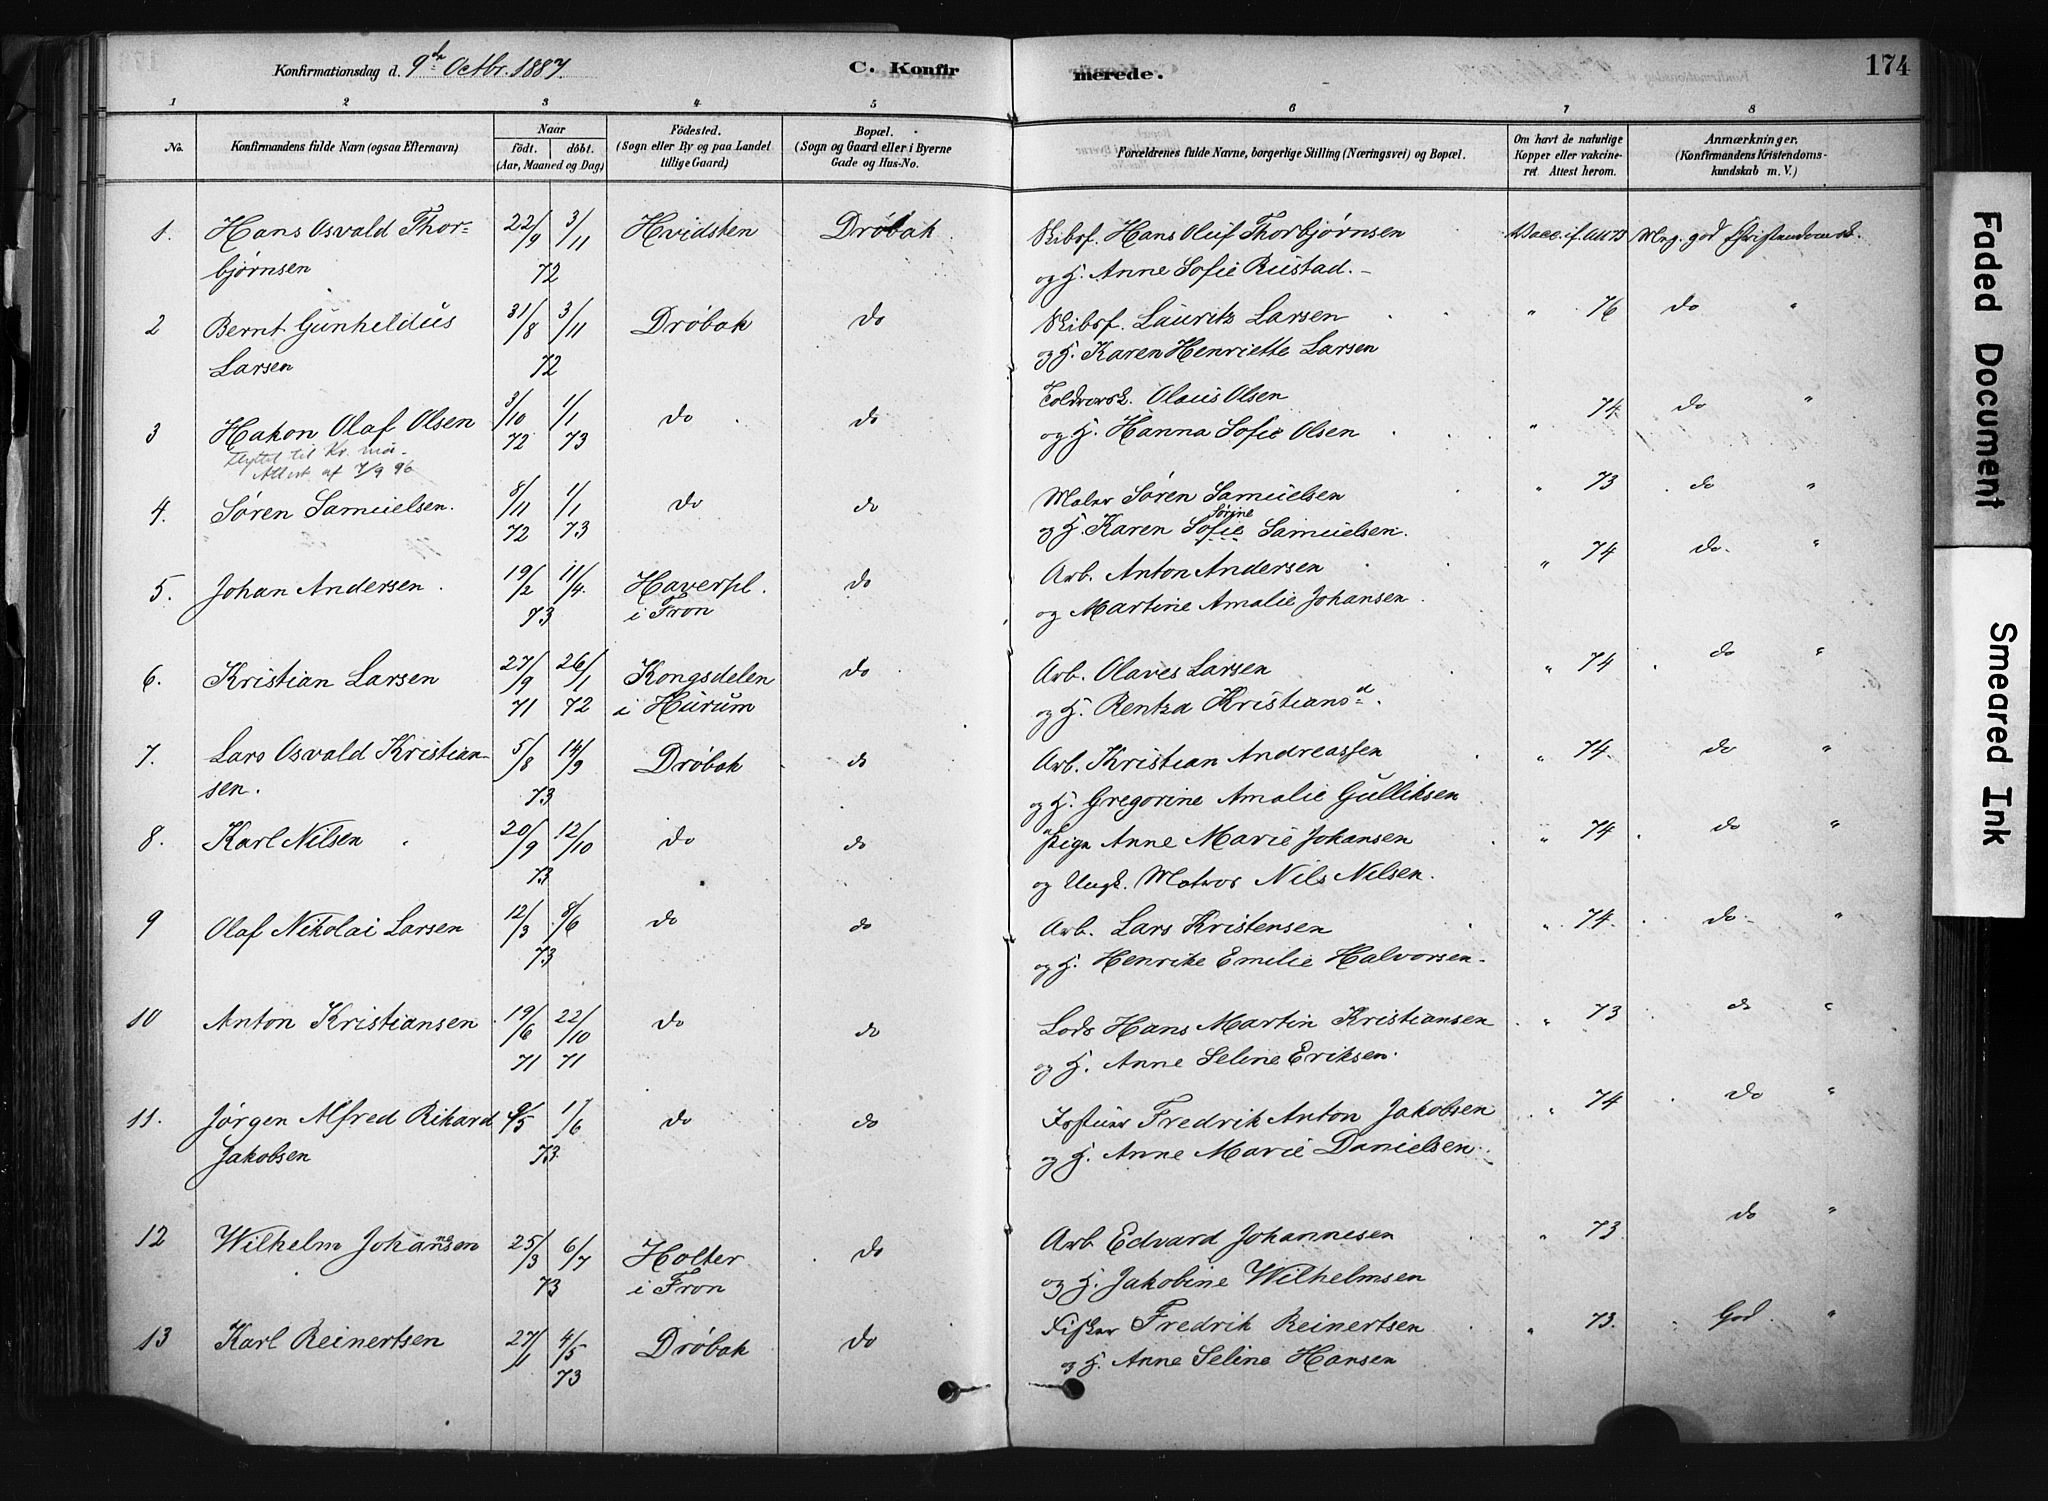 Konfirmationsdag d. 9de Octbr. 1887.
C. Konfirmerede.
174
1 2 3 4 5 6 7 8
No.
Konfirmandens fulde Navn (ogsaa Efternavn)
Naar
født. døbt.
(Aar, Maaned og Dag)
Fødested.
(Sogn eller By og paa Landet
tillige Gaard)
Bopæl.
(Sogn og Gaard eller i Byerne
Gade og Hus-No.
Forældrenes fulde Navne, borgerlige Stilling (Næringsvei) og Bopæl.
Om havt de naturlige
Kopper eller vakcine-
ret Attest herom.
Anmærkninger.
(Konfirmandens Kristendoms-
kundskab m. V.)
1. Hans Osvald Thor= 22/9 3/11 Hvidsten Drøbak Skibsf. Hans Oluf Thorbjørnsen Mng. god Christendomsk.
bjørnsen 72 og H. Anne Sofie Rustad.
2 Bernt Gunheldus 31/8 3/11 Drøbak do Skibsf. Lauritz Larsen " 76 do "
Larsen 72 og H. Karen Henriette Larsen
3 Hakon Olaf Olsen 3/10 1/1 do do Toldrorsk. Olaus Olsen " 74 do "
72 73 og H. Hanna Sofie Olsen
Flyttet til Kr.nia.
Attest af 7/9 96
4. Søren Samuelsen. 8/11 1/1 do do Maler Søren Samuelsen " 73 do "
72 73 og H. Karen Sofie Sørine Samuelsen.
5. Johan Andersen. 19/2 11/4. Haverpl. do Arb. Anton Andersen " 74 do. "
73 i Fron og Martine Amalie Johansen.
6. Kristian Larsen 27/9 26/1 Kongsdelen do Arb. Olaves Larsen " 74 do "
71 72 i Hurum og H. Rentza Kristiansd.
7. Lars Osvald Kristian- 5/8 14/9 Drøbak do Arb. Kristian Andreassen " 74. do "
sen. 73 og H. Gregorine Amalie Gulliksen
8. Karl Nilsen 20/9 12/10 do do Pige Anne Marie Johansen " 74 do "
73 og Ungk. Matros Nils Nilsen.
9 Olaf Nikolai Larsen 12/3 8/6 do do Arb. Lars Kristensen " 74. do "
73 og H. Henrike Emilie Halvorsen.
10 Anton Kristiansen 19/6 22/10 do do Lods Hans Martin Kristiansen " 73 do "
71 71 og H. Anne Seline Eriksen.
11. Jørgen Alfred Rikard 9/5 1/6 do do Fredrik Anton Jakobsen " 74 do "
Jakobsen 73 og H. Anne Marie Danielsen.
12 Wilhelm Johannsen 25/3 6/7 Holter do Arb Edvard Johannesen " 73 do "
73 i Fron og H. Jakobine Wilhelmsen
13 Karl Reinertsen 27/1 4/5 Drøbak do Fisker Fredrik Reinertsen " 73. God. "
73 og H. Anne Seline Hansen
Faded Document
Smeared Ink